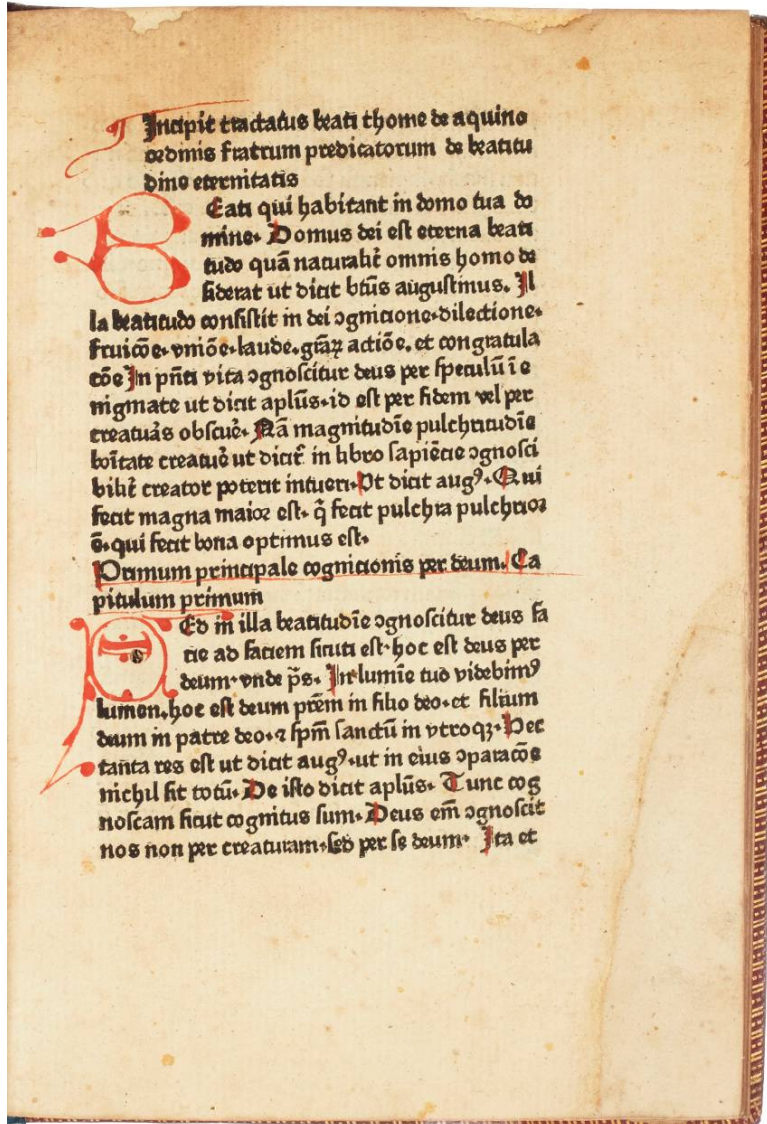 Incipit tractatus beati thome de aquino
ordinis fratrum predicatorum de beatitu
dine eternitatis
Beati qui habitant in domo tua do
mine. Domus dei est eterna beati
tudo quā naturalit̄ omnis homo de
siderat ut dicit btūs augustinus. Il
la beatitudo consistit in dei ꝯgnicione.dilectione.
fruicōe.vniōe.laude.grāꝝ actiōe.et congratula
cōe In pn̄ti vita ꝯgnoscitur deus per speculū ī e
nigmate ut dicit aplūs.id est per fidem vel per
creatuᷓs obscuē. Nā magnitudīe pulchritudīe
boītate creatuē ut dicit̄ in libro sapiēcie ꝯgnosci
bilit̄ creator poterit intueri. Ut dicit augꝰ. Qui
fecit magna maior est. q̄ fecit pulchra pulchrior
ē.qui fecit bona optimus est.
Primum principale cognicionis per deum. Ca
pitulum primum
Ed in illa beatitudīe ꝯgnoscitur deus fa
cie ad faciem sicuti est.hoc est deus per
deum.vnde p̄s. In lumīe tuo videbimꝰ
lumen.hoc est deum prēm in filio deo.et filium
deum in patre deo.⁊ spm̄ sanctū in vtroqꝫ. Hec
tanta res est ut dicit augꝰ.ut in eius ꝯparacōe
nichil sit totū. De isto dicit aplūs. Tunc cog
noscam sicut cognitus sum. Deus em̄ ꝯgnoscit
nos non per creaturam.sed per se deum. Ita et